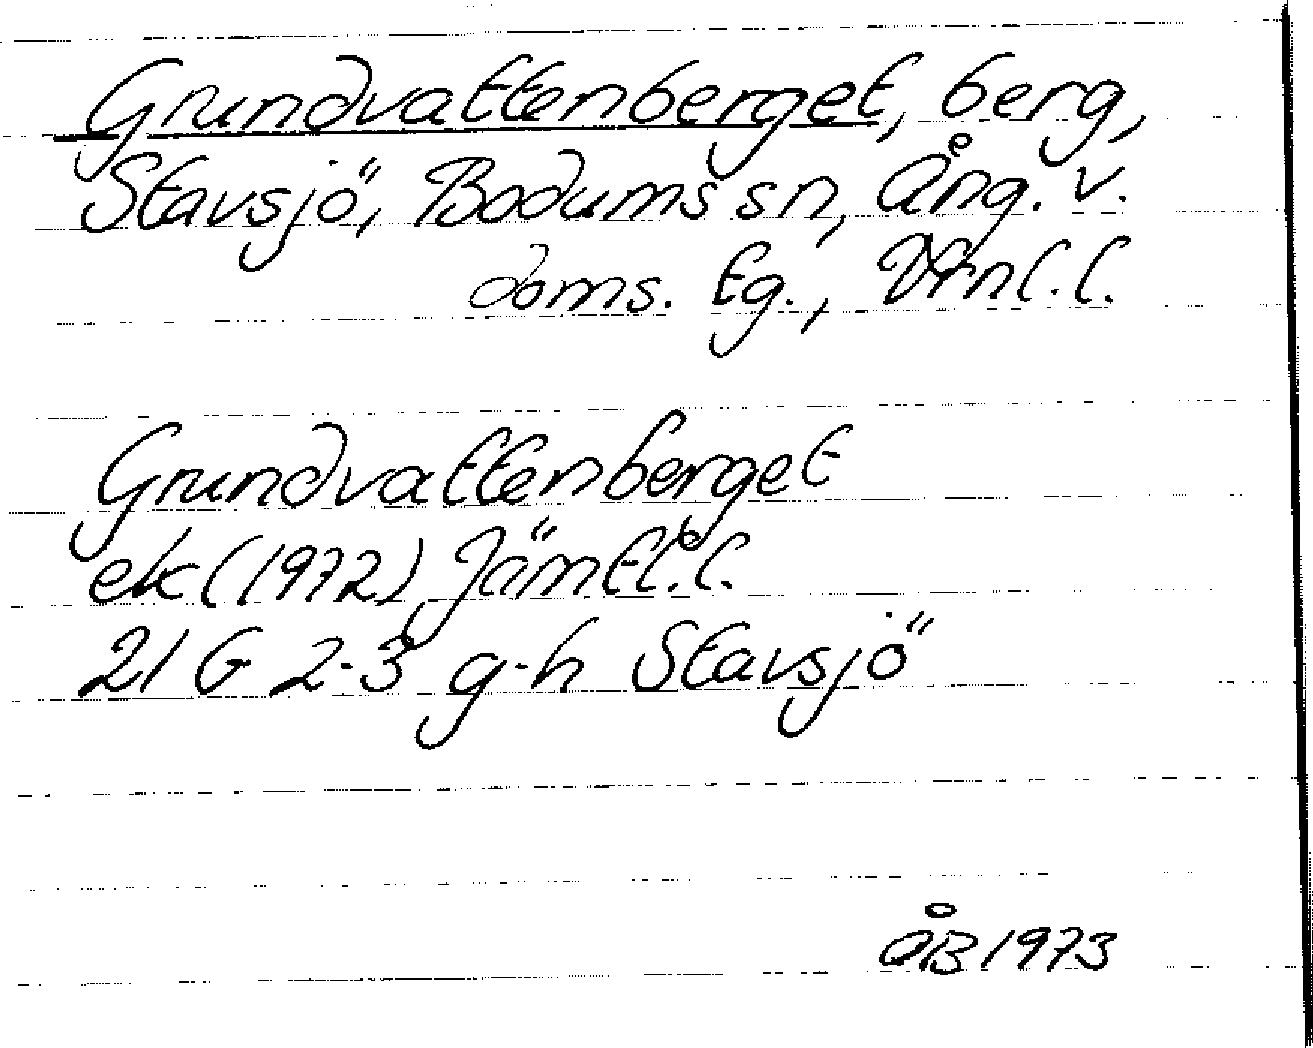 Grundvattenberget, berg,
Stavsjö, Bodums sn, Ång. v.
doms. tg., Vrnl. l.
Grundvattenberget
ek (1972) Jämtl. l.
21 G 2-3 g-h Stavsjö
ÅB 1973